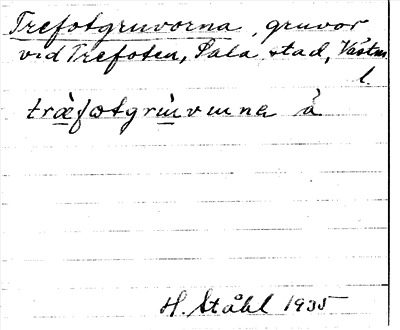 Trefotgruvorna, gruvor
vid Trefoten, Sala stad, Västm.
l.
træ̀fωtgrùvωṇa å
H. Ståhl 1935